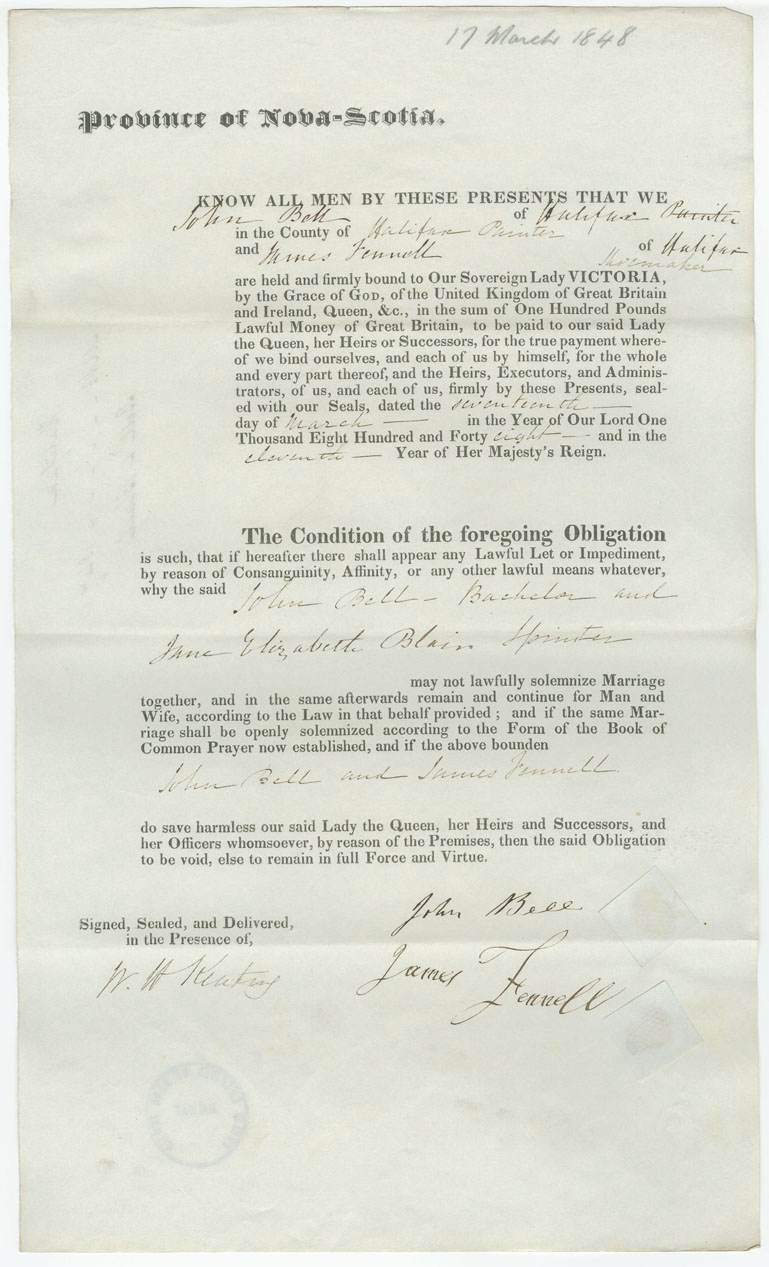 17 March 1848
Province of Nova-Scotia.
KNOW ALL MEN BY THESE PRESENTS THAT WE
John Bell of Halifax Painter
in the County of Halifax Painter
and James Fennell of Halifax
Shoemaker
are held and firmly bound to Our Sovereign Lady VICTORIA,
by the Grace of GOD, of the United Kingdom of Great Britain
and Ireland, Queen, &c., in the sum of One Hundred Pounds
Lawful Money of Great Britain, to be paid to our said Lady
the Queen, her Heirs or Successors, for the true payment where-
of we bind ourselves, and each of us by himself, for the whole
and every part thereof, and the Heirs, Executors, and Adminis-
trators, of us, and each of us, firmly by these Presents, seal-
ed with our Seals, dated the seventeenth
day of March in the Year of Our Lord One
Thousand Eight Hundred and Forty eight and in the
eleventh Year of Her Majesty's Reign.
The Condition of the foregoing Obligation
is such, that if hereafter there shall appear any Lawful Let or Impediment,
by reason of Consanguinity, Affinity, or any other lawful means whatever,
why the said John Bell - Bachelor and
Jane Elizabeth Blain Spinster
may not lawfully solemnize Marriage
together, and in the same afterwards remain and continue for Man and
Wife, according to the Law in that behalf provided ; and if the same Mar-
riage shall be openly solemnized according to the Form of the Book of
Common Prayer now established, and if the above bounden
John Bell and James Fennell
do save harmless our said Lady the Queen, her Heirs and Successors, and
her Officers whomsoever, by reason of the Premises, then the said Obligation
to be void, else to remain in full Force and Virtue.
John Bell
Signed, Sealed, and Delivered,
in the Presence of,
W. H Keating
James Fennell